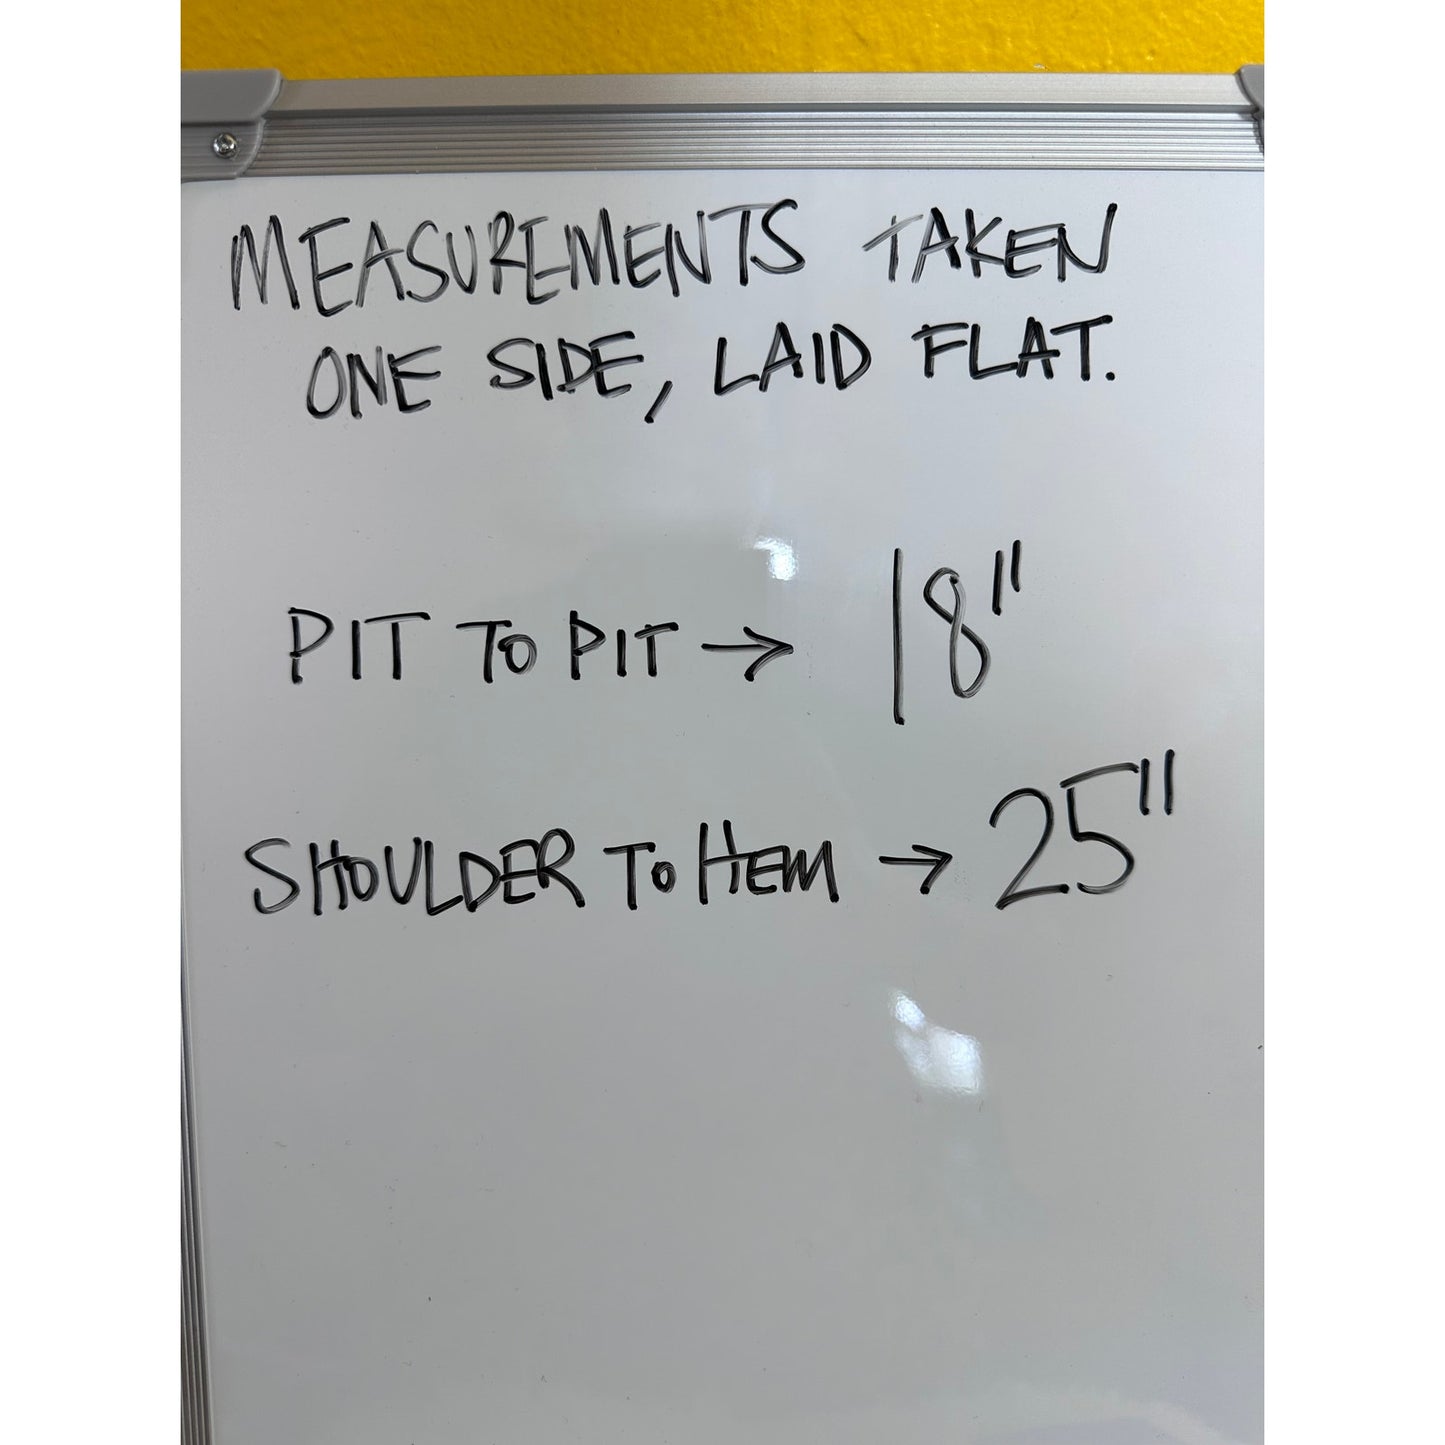 MEASUREMENTS TAKEN
ONE SIDE, LAID FLAT.
PIT TO PIT → 18"
SHOULDER TO HEM → 25"